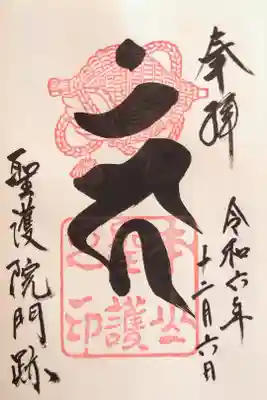 奉拝
令和六年
十二月六日
本山
聖護
之印
聖護院門跡